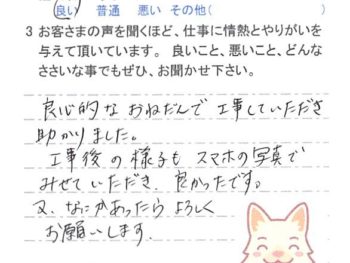 良い 普通 悪い その他(
3 お客さまの声を聞くほど、仕事に情熱とやりがいを
与えて頂いています。良いこと、悪いこと、どんな
ささいな事でもぜひ、お聞かせ下さい。
良心的なおねだんで工事していただき
助かりました。
工事後の様子もスマホの写真で
みせていただき、良かったです。
又、なにかあったらよろしく
お願いします。